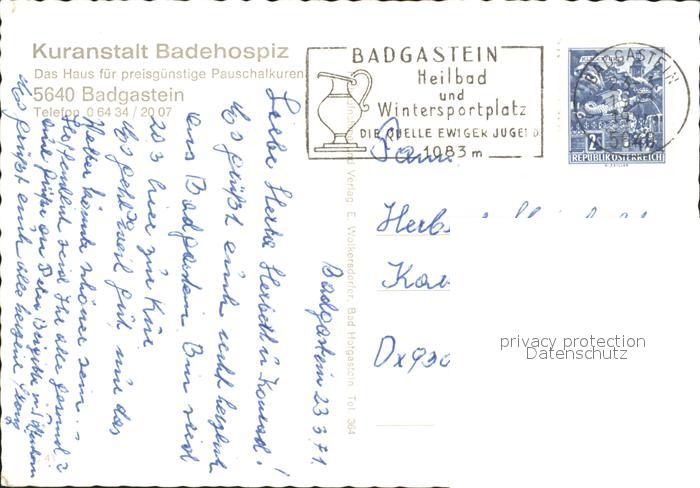 Kuranstalt Badehospiz
Das Haus für preisgünstige Pauschalkuren
5640 Badgastein
Telefon 0 64 34 / 20 07
BADGASTEIN
Heilbad
und
Wintersportplatz
DIE QUELLE EWIGER JUGEND
1083 m
BADGASTEIN
5640
2
REPUBLIK ÖSTERREICH
Badgastein 23.3.71.
Liebe Herta Herbert u Konrad!
Es grüßt euch recht herzlich
aus Badgastein. Bin seid
20.3 hier zur Kur.
Es geht weil gut, nur das
Wetter könnte schöner sein.
Hoffendlich seid Ihr alle gesund?
Es grüßt euch alle herzlich
Fam
Verlag: E. Wolkersdorfer, Bad Hofgastein, Tel. 364
privacy protection
Datenschutz